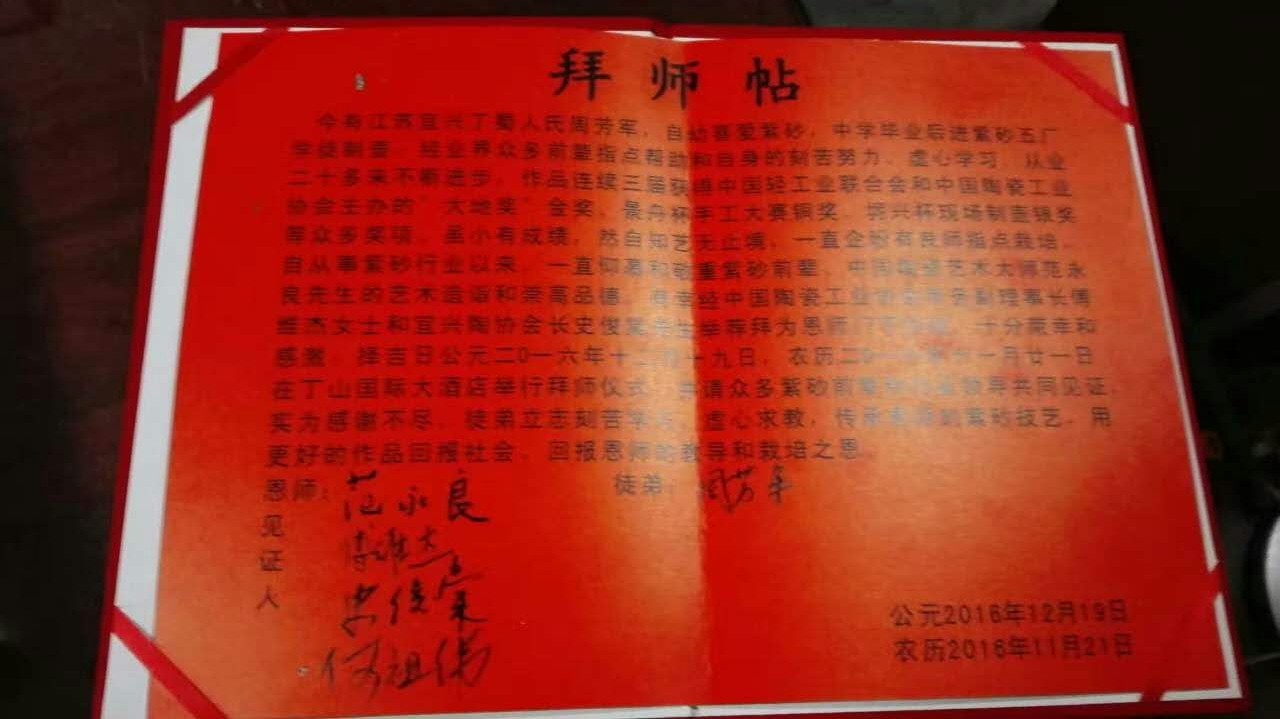 拜师帖
今有江苏宜兴丁蜀人氏周芳军，自幼喜爱紫砂，中学毕业后进紫砂五厂
学徒制壶，经业界众多前辈指点帮助和自身的刻苦努力、虚心学习，从业
二十多来不断进步，作品连续三届获得中国轻工业联合会和中国陶瓷工业
协会主办的“大地奖”金奖、景舟杯手工大赛铜奖、振兴杯现场制壶银奖
等众多奖项。虽小有成绩，然自知艺无止境，一直企盼有良师指点栽培。
自从事紫砂行业以来，一直仰慕和敬重紫砂前辈、中国陶瓷艺术大师范永
良先生的艺术造诣和崇高品德。有幸经中国陶瓷工业协会副理事长傅
维杰女士和宜兴陶协会长史俊棠先生举荐拜为恩师，十分荣幸和
感激。择吉日公元二0一六年十二月十九日，农历二0一六年十一月廿一日
在丁山国际大酒店举行拜师仪式，并请众多紫砂前辈领导共同见证，
实为感谢不尽。徒弟立志刻苦学习，虚心求教，传承紫砂技艺，用
更好的作品回报社会，回报恩师的教导和栽培之恩。
恩师：范永良 徒弟：周芳军
见证人
傅维杰
史俊棠
何祖伟
公元2016年12月19日
农历2016年11月21日